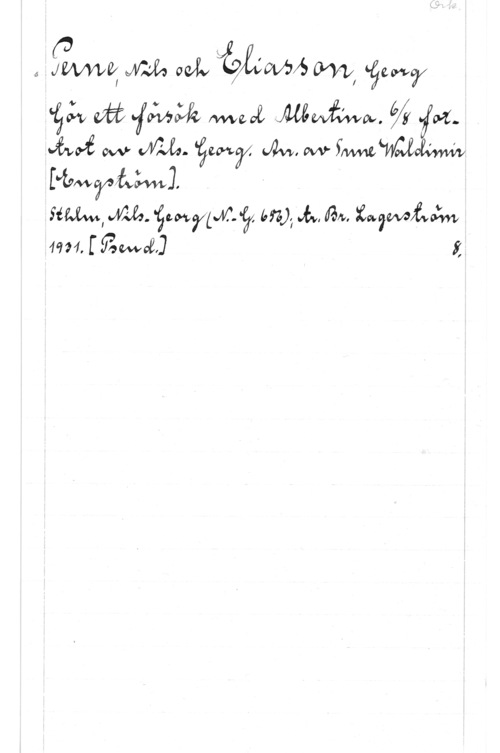 Ork.
Perne, Nils och Eliasson, Georg
Gör ett försök med Albertina. 6/8 fox-
trot av Nils-Georg. Arr. av Sune Waldimir
[Engström].
Sthlm, Nils-Georg (N.-G. 653); tr. Br. Lagerström
1931. [Pseud.] 8,